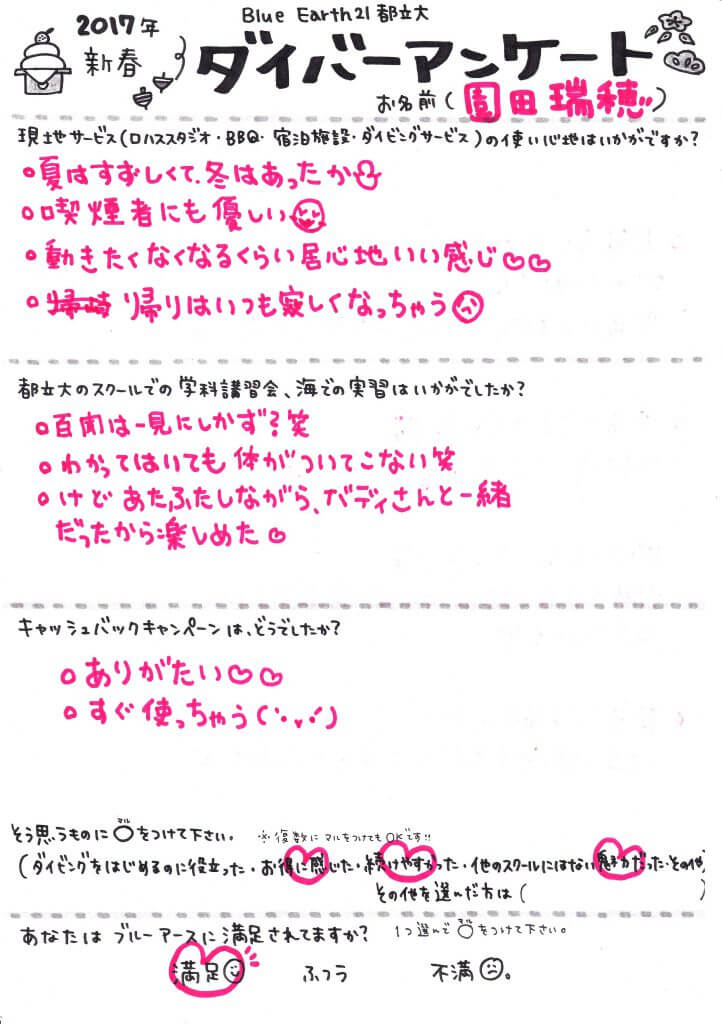 Blue Earth21 都立大
2017年
新春
ダイバーアンケート
お名前(園田瑞穂)
現地サービス(ロハススタジオ・BBQ・宿泊施設・ダイビングサービス)の使い心地はいかがですか?
○夏はすずしくて、冬はあったか
○喫煙者にも優しい
○動きたくなくなるくらい居心地いい感じ♡♡
○帰りはいつも寂しくなっちゃう
都立大のスクールでの学科講習会、海での実習はいかがでしたか?
○百聞は一見にしかず?笑
○わかってはいても体がついてこない笑
○けどあたふたしながら、バディさんと一緒
だったから楽しめた♡
キャッシュバックキャンペーンは、どうでしたか?
○ありがたい♡♡
○すぐ使っちゃう(・᎑・)
そう思うものに○マルをつけて下さい。 ※復数にマルをつけてもOKです!!
(ダイビングをはじめるのに役立った・お得に感じた・続けやすかった・他のスクールにはない魅力だった・その他
その他を選んだ方は( )
あなたはブルーアースに満足されてますか? 1つ選んで○マルをつけて下さい。
満足 ふつう 不満。